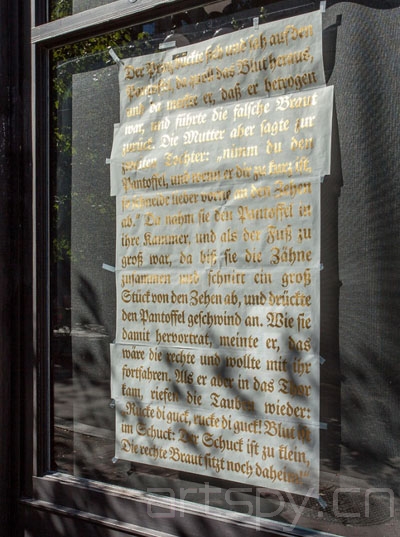 Der Prinz bückte sich und sah auf den
Pantoffel, da quoll das Blut heraus,
und da merkte er, daß er betrogen
war, und führte die falsche Braut
zurück. Die Mutter aber sagte zur
zweiten Tochter: „nimm du den
Pantoffel, und wenn er dir zu kurz ist,
so schneide lieber vorne an den Zehen
ab.“ Da nahm sie den Pantoffel in
ihre Kammer, und als der Fuß zu
groß war, da biß sie die Zähne
zusammen und schnitt ein groß
Stück von den Zehen ab, und drückte
den Pantoffel geschwind an. Wie sie
damit hervortrat, meinte er, das
wäre die rechte und wollte mit ihr
fortfahren. Als er aber in das Thor
kam, riefen die Tauben wieder:
Rucke di guck, rucke di guck! Blut ist
im Schuck: Der Schuck ist zu klein,
Die rechte Braut sitzt noch daheim!
artspy.cn